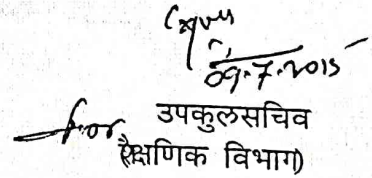 09.7.2015
for उपकुलसचिव
(शैक्षणिक विभाग)